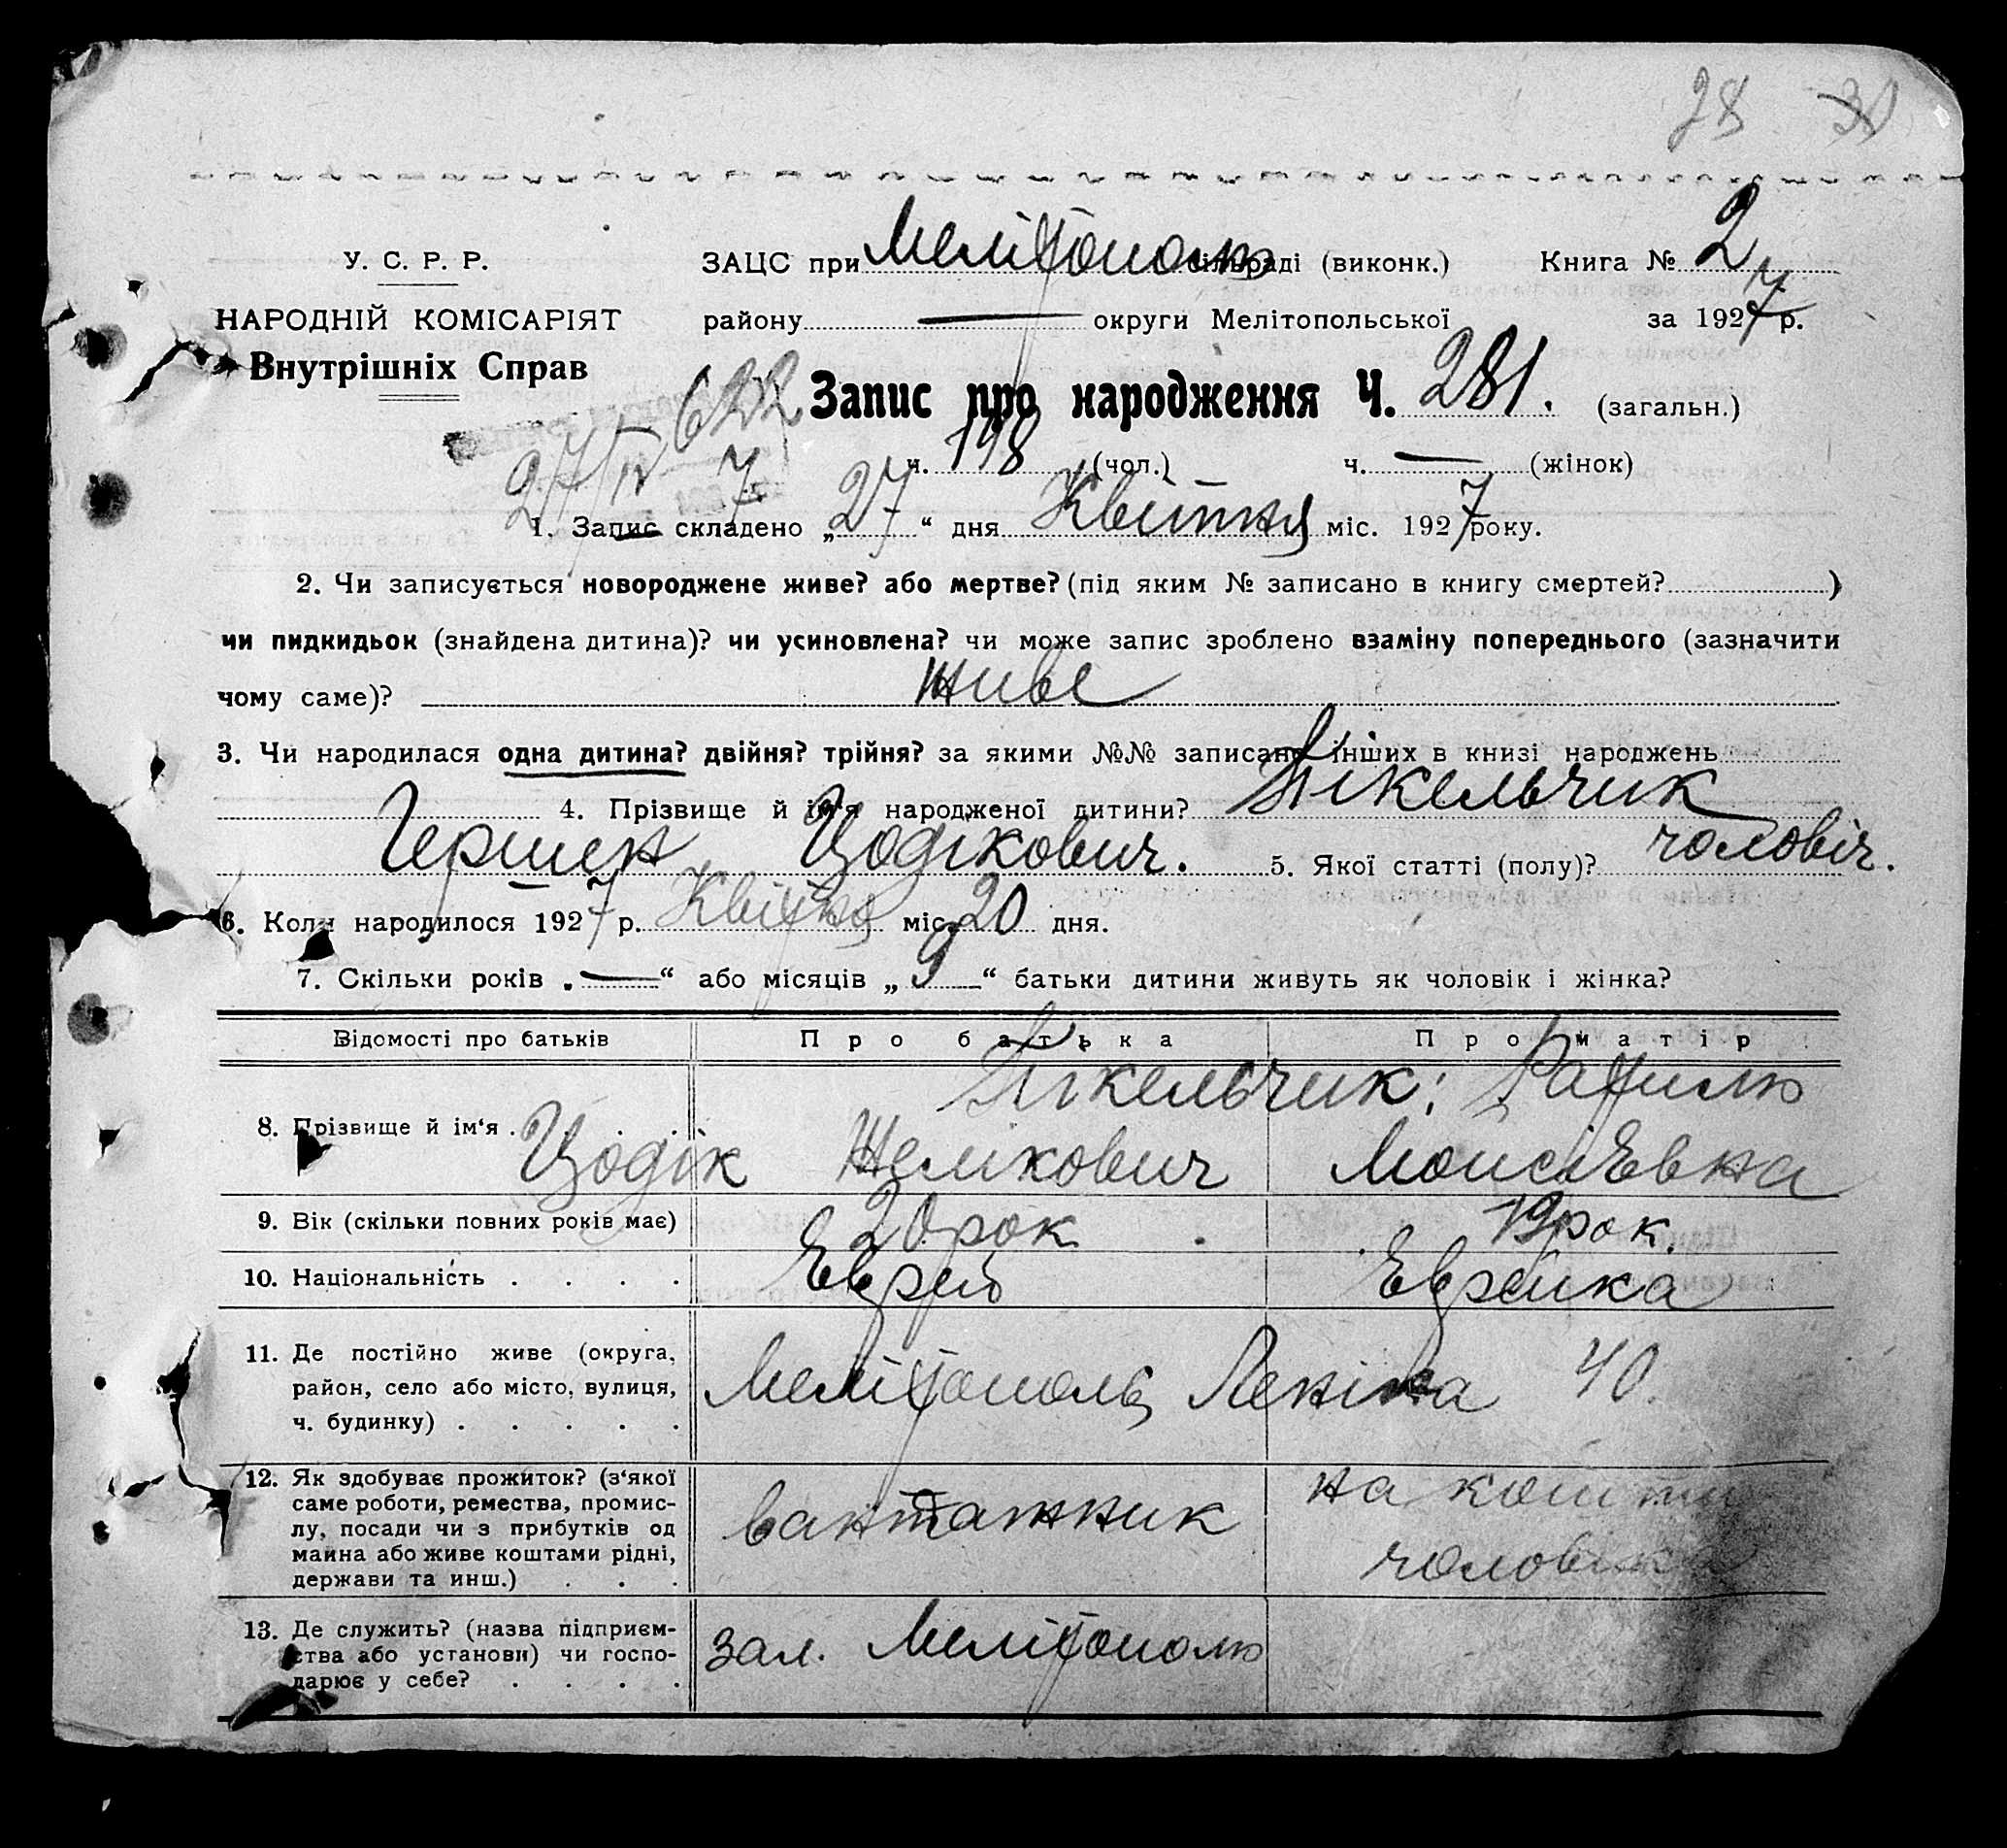 28 30
У. С. Р. Р. ЗАЦС при Мелітополю сільраді (виконк.) Книга № 2
НАРОДНІЙ КОМІСАРІЯТ району — округи Мелітопольської за 1927 р.
Внутрішніх Справ
622 Запис про народження Ч. 281. (загальн.)
27/IV 7 ч. 198 (чол.) ч. — (жінок)
1. Запис складено „27“ дня Квітня міс. 1927 року.
2. Чи записується новороджене живе? або мертве? (під яким № записано в книгу смертей? )
чи пидкидьок (знайдена дитина)? чи усиновлена? чи може запис зроблено взаміну попереднього (зазначити
чому саме)? живе
3. Чи народилася одна дитина? двійня? трійня? за якими №№ записано інших в книзі народжень
4. Прізвище й ім'я народженої дитини? Пікельчик
Гершен Цодікович. 5. Якої статті (полу)? чоловіч.
6. Коли народилося 1927 р. Квітня міс. 20 дня.
7. Скільки років „—“ або місяців „9“ батьки дитини живуть як чоловік і жінка?
Відомості про батьків Про батька Про матір
Пікельчик: Рахиль
8. Прізвище й ім'я . . . . Цодік Шеликович Моисіевна
9. Вік (скільки повних років має) 20 рок 19 рок.
10. Національність . . . . Еврей Еврейка
11. Де постійно живе (округа,
район, село або місто, вулиця, Мелітополь, Леніна 40.
ч. будинку) . . . . .
12. Як здобуває прожиток? (з'якої на кошти
саме роботи, ремества, промис-
лу, посади чи з прибутків од вантажник
маина або живе коштами рідні, чоловіка
держави та инш.) . . .
13. Де служить? (назва підприєм-
ства або установи) чи госпо- зал. Мелітополю
дарює у себе? . . . .